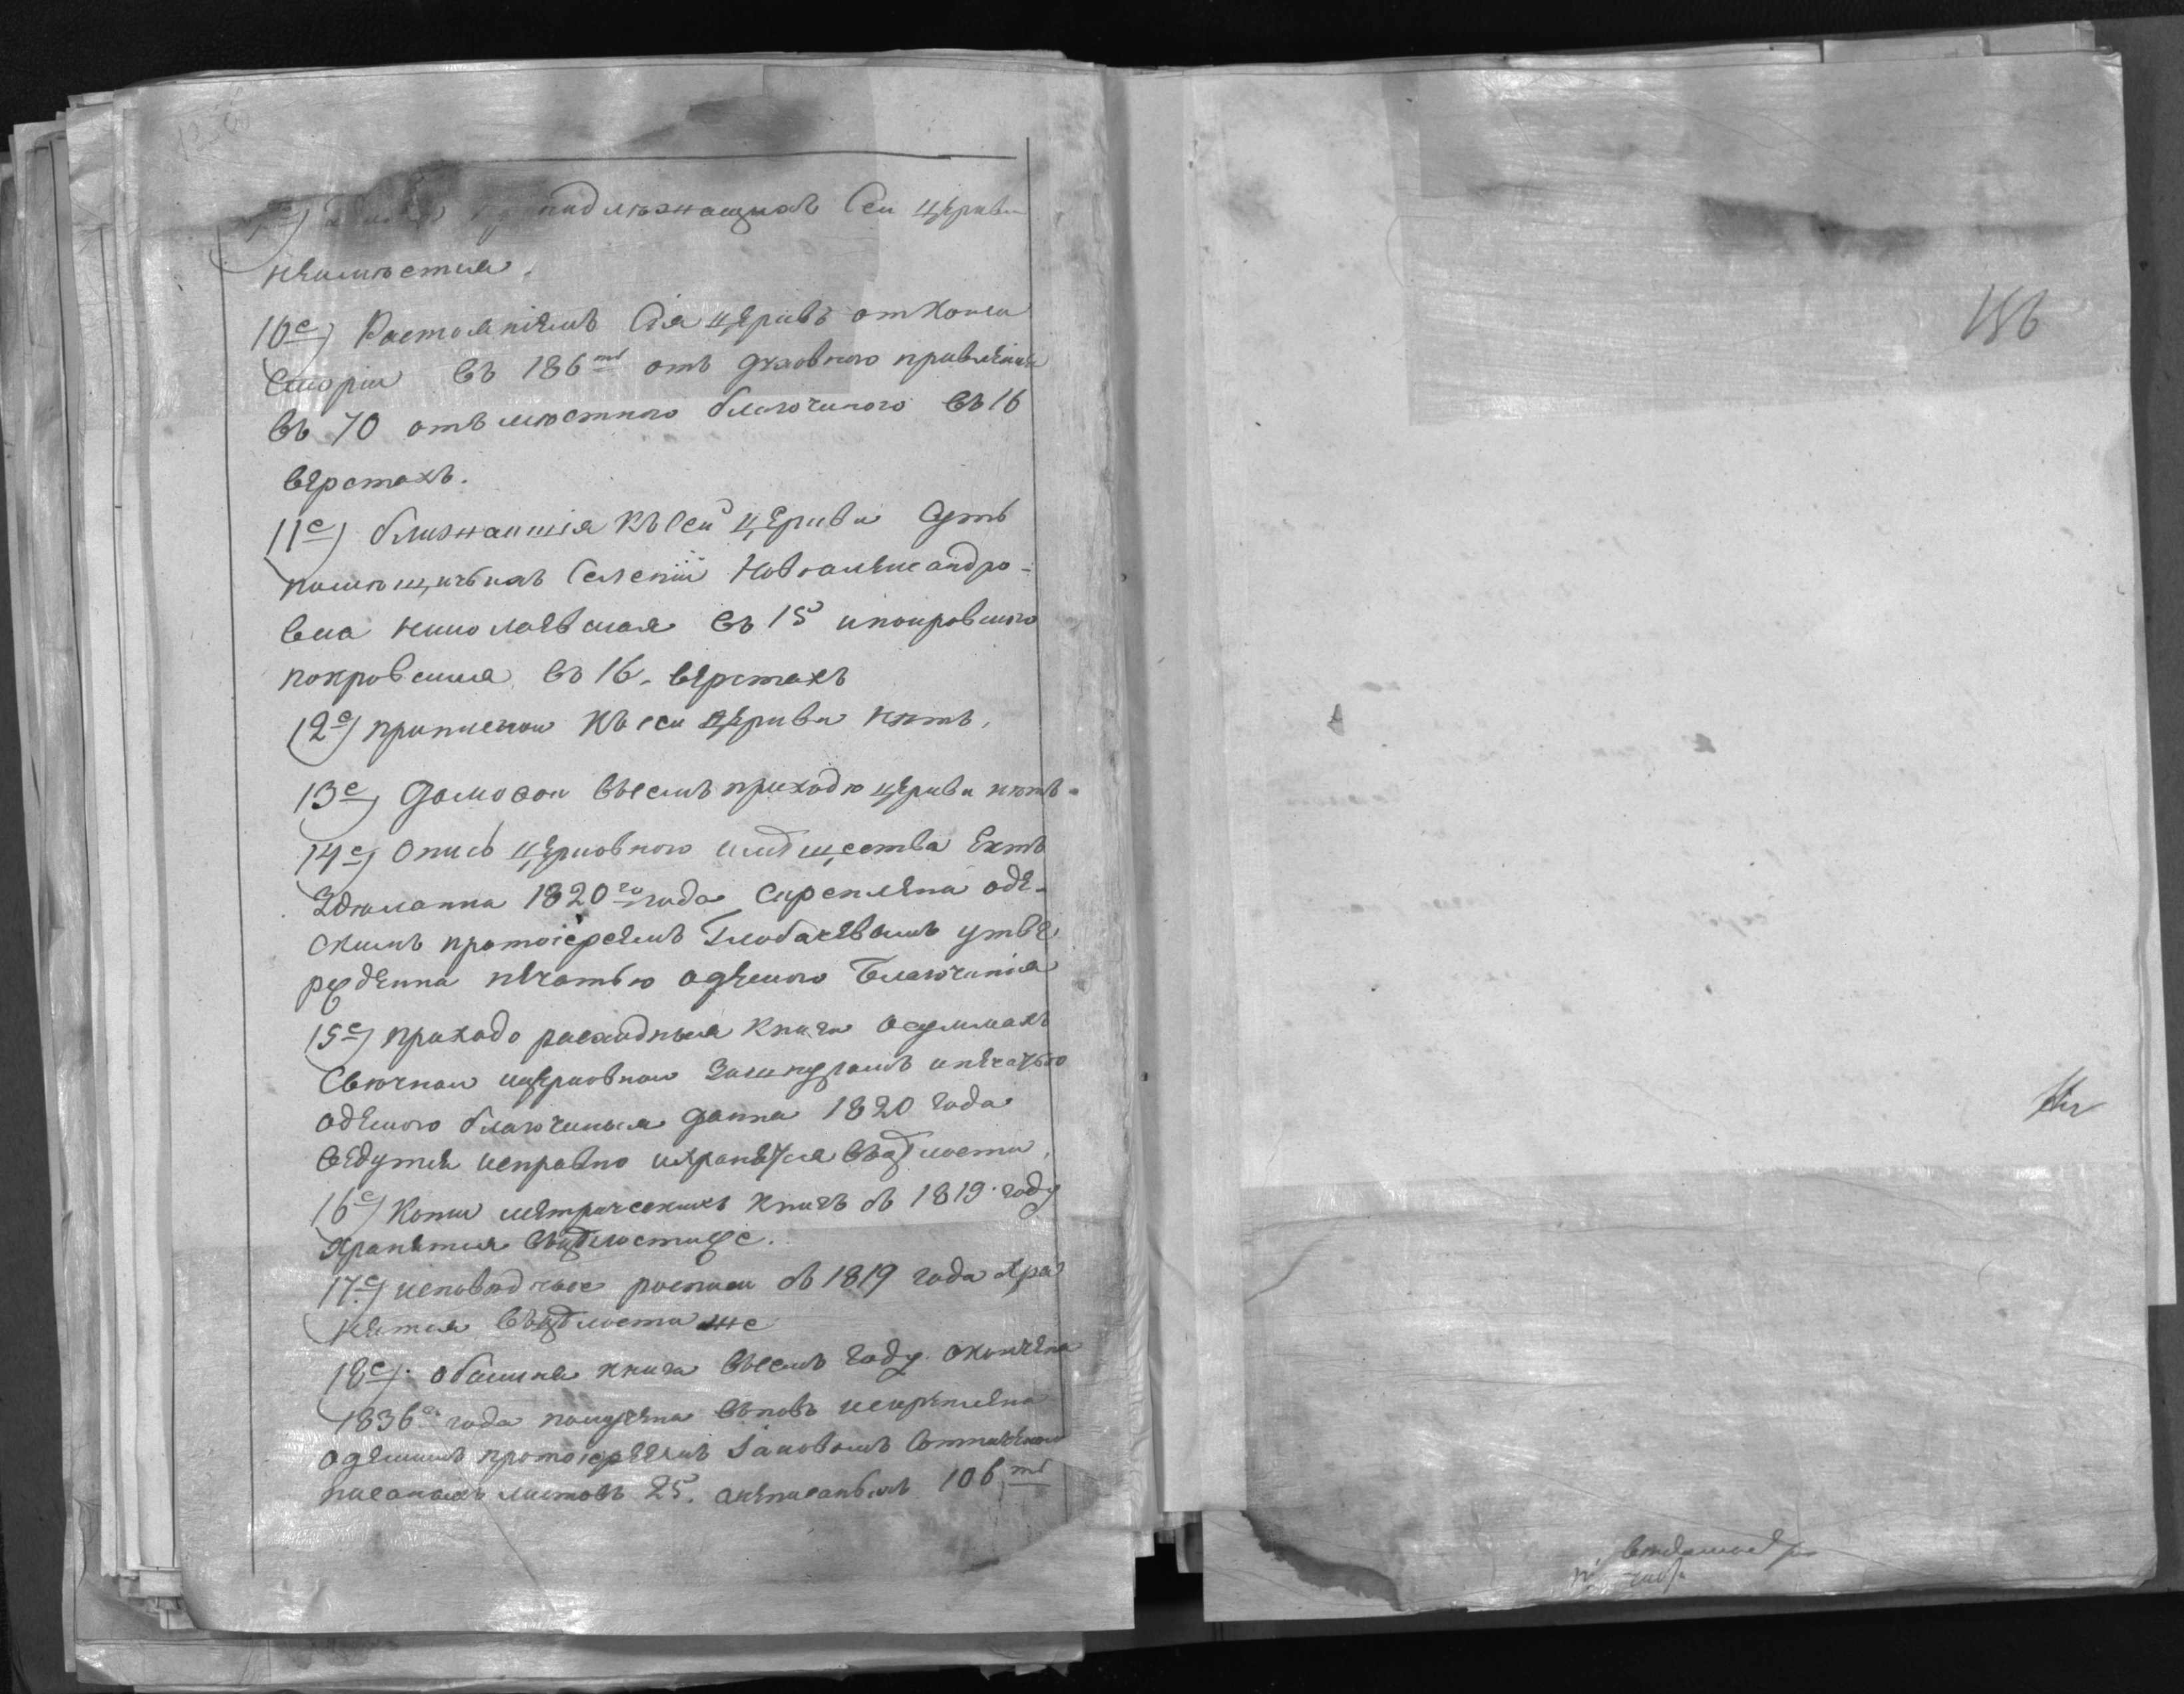 надлѣжащихъ Сеи церкви
неимѣется.
10е) Растоянiемъ Сiя церквь отКонси
сторiи въ 186тъ отъ духовного правленiя
въ 70 отъ мѣстного благочиного въ 16
верстахъ.
11е) ближаишiя къ сей церкви Суть
помѣщичьихъ Селенiй Новоалександро-
вка николаевская въ 15 ипокровского
покровския въ 16. верстахъ
12е) приписнои къ сеи церкви нѣтъ.
13е) Домовои въсемъ приходѣ церкви нѣтъ.
14е) Опись церковного имущества Естъ
Здѣланна 1820го года Скреплена оде-
скимъ протоiереемъ утве
ржденна печатью одескаго Благочинiя
15е) приходо расходныя Книги Осуммахъ
Свечнои ицерковнои Зашнуромъ ипечатью
одескаго благочиныя Данна 1820 Года
Ведутся исправно ихранятся
16е) Копiи метрическихъ книгъ съ 1819. году
Хранятся
17е) исповѣдные росписи съ 1819 года Хра
нятся же
18е) обыскна книга въсемъ Году окончена
1836го года получена въновъ искреплена
одескимъ протоiереемъ Iаковомъ
писаныхъ листовъ 25. анеписаныхъ 106тъ
186